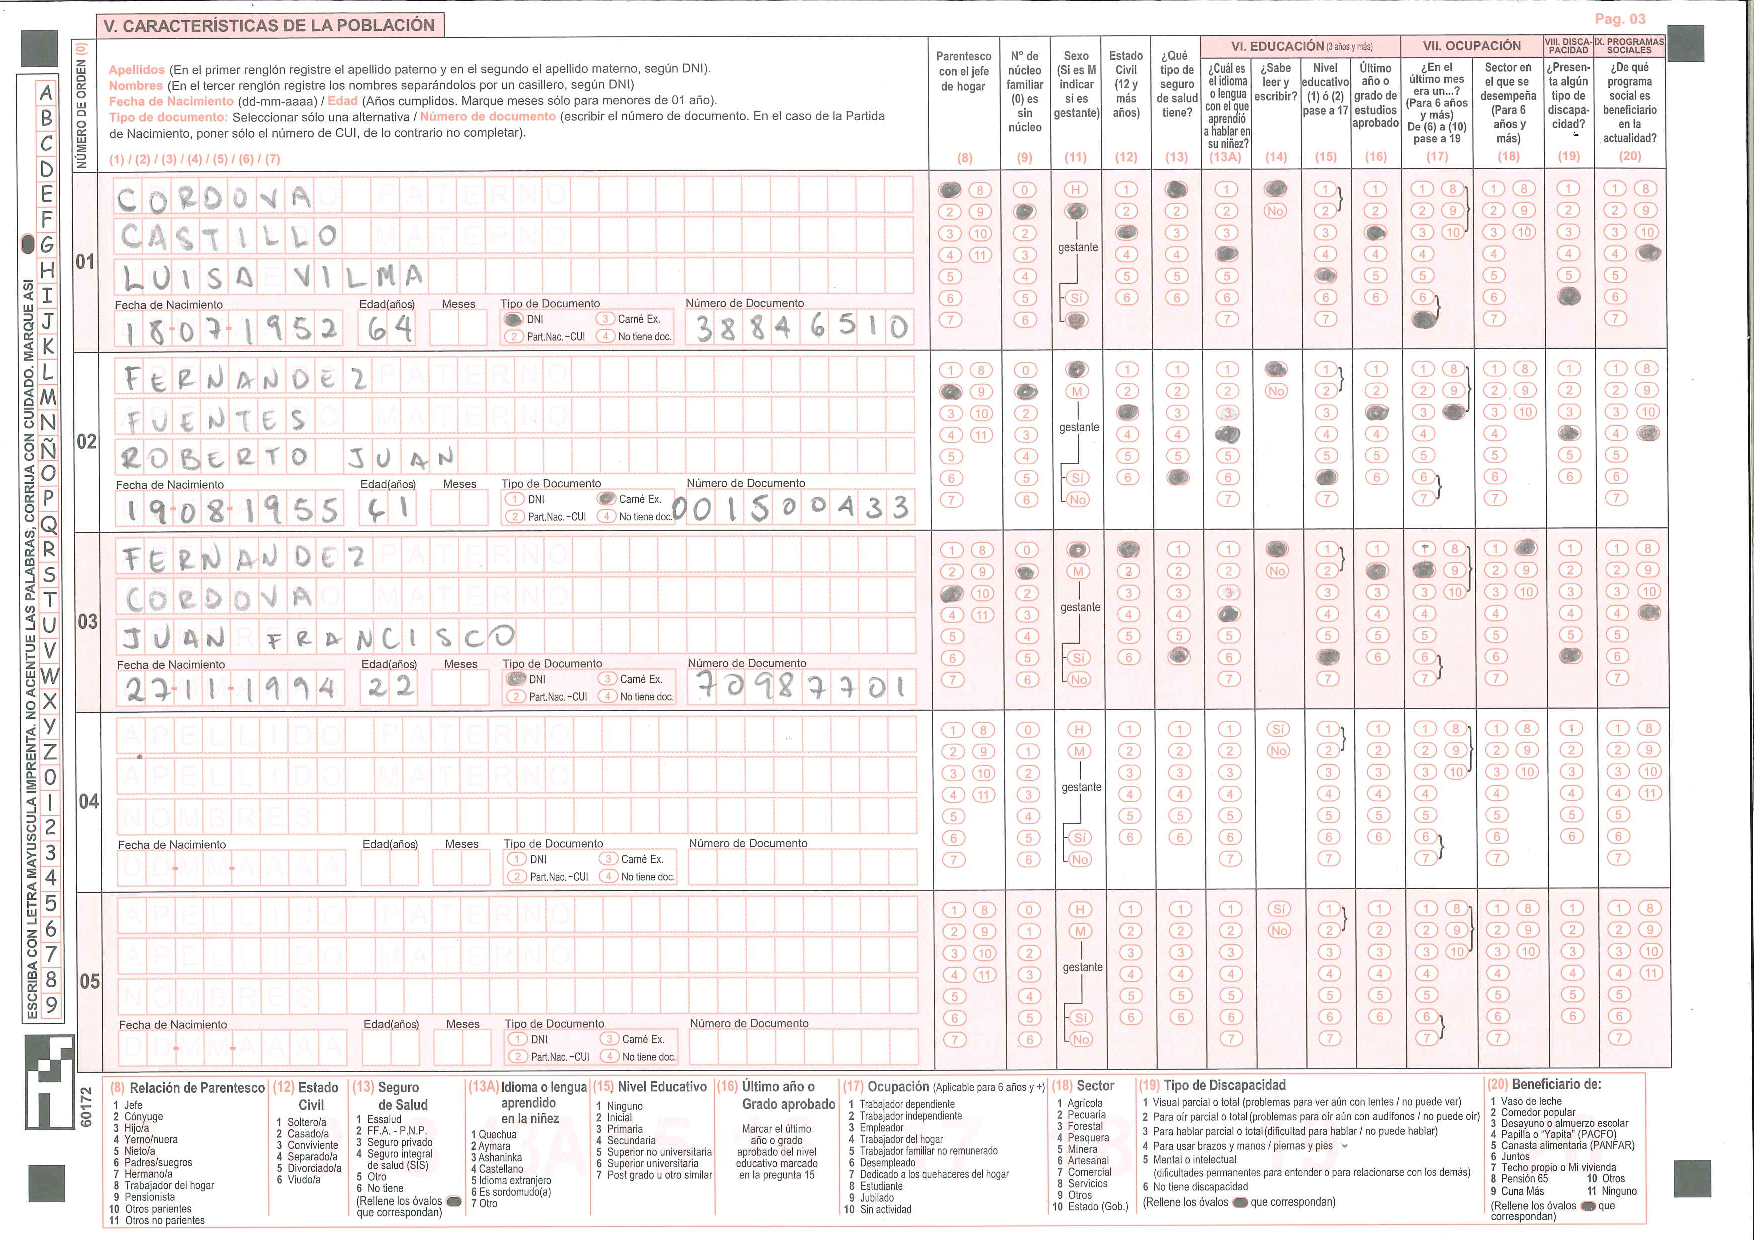 V. CARACTERÍSTICAS DE LA POBLACIÓN
Pag. 03
NÚMERO DE ORDEN (0)
Apellidos (En el primer renglón registre el apellido paterno y en el segundo el apellido materno, según DNI).
Nombres (En el tercer renglón registre los nombres separándolos por un casillero, según DNI)
Fecha de Nacimiento (dd-mm-aaaa) / Edad (Años cumplidos. Marque meses sólo para menores de 01 año).
Tipo de documento: Seleccionar sólo una alternativa / Número de documento (escribir el número de documento. En el caso de la Partida
de Nacimiento, poner sólo el número de CUI, de lo contrario no completar).
(1) / (2) / (3) / (4) / (5) / (6) / (7)
Parentesco con el jefe de hogar (8)
N° de núcleo familiar (0) es sin núcleo (9)
Sexo (Si es M indicar si es gestante) (11)
Estado Civil (12 y más años) (12)
¿Qué tipo de seguro de salud tiene? (13)
VI. EDUCACIÓN (3 años y más)
¿Cuál es el idioma o lengua con el que aprendió a hablar en su niñez? (13A)
¿Sabe leer y escribir? (14)
Nivel educativo (1) ó (2) pase a 17 (15)
Último año o grado de estudios aprobado (16)
VII. OCUPACIÓN
¿En el último mes era un...? (Para 6 años y más) De (6) a (10) pase a 19 (17)
Sector en el que se desempeña (Para 6 años y más) (18)
VIII. DISCAPACIDAD
¿Presenta algún tipo de discapacidad? (19)
IX. PROGRAMAS SOCIALES
¿De qué programa social es beneficiario en la actualidad? (20)
ESCRIBA CON LETRA MAYUSCULA IMPRENTA. NO ACENTUE LAS PALABRAS, CORRIJA CON CUIDADO. MARQUE ASI
A B C D E F G H I J K L M N Ñ O P Q R S T U V W X Y Z 0 1 2 3 4 5 6 7 8 9
01
CORDOVA
CASTILLO
LUISA VILMA
Fecha de Nacimiento Edad(años) Meses Tipo de Documento Número de Documento
18-07-1952 64 DNI 3 Carné Ex. 2 Part.Nac.-CUI 4 No tiene doc. 38846510
gestante
Sí
02
FERNANDEZ
FUENTES
ROBERTO JUAN
Fecha de Nacimiento Edad(años) Meses Tipo de Documento Número de Documento
19-08-1955 61 1 DNI Carné Ex. 2 Part.Nac.-CUI 4 No tiene doc. 001500433
gestante
Sí
No
03
FERNANDEZ
CORDOVA
JUAN FRANCISCO
Fecha de Nacimiento Edad(años) Meses Tipo de Documento Número de Documento
27-11-1994 22 DNI 3 Carné Ex. 2 Part.Nac.-CUI 4 No tiene doc. 70987701
gestante
Sí
No
04
APELLIDO PATERNO
APELLIDO MATERNO
NOMBRES
Fecha de Nacimiento Edad(años) Meses Tipo de Documento Número de Documento
DD-MM-AAAA 1 DNI 3 Carné Ex. 2 Part.Nac.-CUI 4 No tiene doc.
gestante
Sí
No
05
APELLIDO PATERNO
APELLIDO MATERNO
NOMBRES
Fecha de Nacimiento Edad(años) Meses Tipo de Documento Número de Documento
DD-MM-AAAA 1 DNI 3 Carné Ex. 2 Part.Nac.-CUI 4 No tiene doc.
gestante
Sí
No
60172
(8) Relación de Parentesco
1 Jefe
2 Cónyuge
3 Hijo/a
4 Yerno/nuera
5 Nieto/a
6 Padres/suegros
7 Hermano/a
8 Trabajador del hogar
9 Pensionista
10 Otros parientes
11 Otros no parientes
(12) Estado Civil
1 Soltero/a
2 Casado/a
3 Conviviente
4 Separado/a
5 Divorciado/a
6 Viudo/a
(13) Seguro de Salud
1 Essalud
2 FF.A. - P.N.P.
3 Seguro privado
4 Seguro integral de salud (SIS)
5 Otro
6 No tiene
(Rellene los óvalos que correspondan)
(13A) Idioma o lengua aprendido en la niñez
1 Quechua
2 Aymara
3 Ashaninka
4 Castellano
5 Idioma extranjero
6 Es sordomudo(a)
7 Otro
(15) Nivel Educativo
1 Ninguno
2 Inicial
3 Primaria
4 Secundaria
5 Superior no universitaria
6 Superior universitaria
7 Post grado u otro similar
(16) Último año o Grado aprobado
Marcar el último año o grado aprobado del nivel educativo marcado en la pregunta 15
(17) Ocupación (Aplicable para 6 años y +)
1 Trabajador dependiente
2 Trabajador independiente
3 Empleador
4 Trabajador del hogar
5 Trabajador familiar no remunerado
6 Desempleado
7 Dedicado a los quehaceres del hogar
8 Estudiante
9 Jubilado
10 Sin actividad
(18) Sector
1 Agrícola
2 Pecuaria
3 Forestal
4 Pesquera
5 Minera
6 Artesanal
7 Comercial
8 Servicios
9 Otros
10 Estado (Gob.)
(19) Tipo de Discapacidad
1 Visual parcial o total (problemas para ver aún con lentes / no puede ver)
2 Para oír parcial o total (problemas para oír aún con audífonos / no puede oir)
3 Para hablar parcial o total (dificultad para hablar / no puede hablar)
4 Para usar brazos y manos / piernas y pies
5 Mental o intelectual
(dificultades permanentes para entender o para relacionarse con los demás)
6 No tiene discapacidad
(Rellene los óvalos que correspondan)
(20) Beneficiario de:
1 Vaso de leche
2 Comedor popular
3 Desayuno o almuerzo escolar
4 Papilla o "Yapita" (PACFO)
5 Canasta alimentaria (PANFAR)
6 Juntos
7 Techo propio o Mi vivienda
8 Pensión 65 10 Otros
9 Cuna Más 11 Ninguno
(Rellene los óvalos que correspondan)